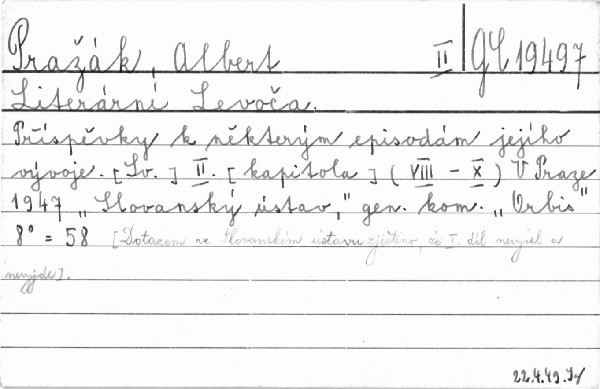 Pražák, Albert II Gℓ 19497
Literární Levoča.
Příspěvky k některým episodám jejího
vývoje. [Sv.] II. [kapitola] (VIII - X) V Praze
1947 „Slovanský ústav," gen. kom. „Orbis"
8° = 58 [Dotazem ve Slovanském ústavu zjištěno, že I. díl nevyšel a
nevyjde].
22.4.49.